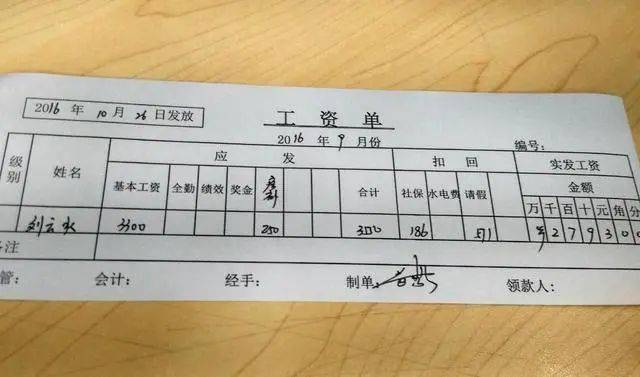 2016 年 10 月 26 日发放
工 资 单
2016 年 9 月份
编号:
级别 姓名 应 发 扣 回 实发工资
基本工资 全勤 绩效 奖金 合计 社保 水电费 请假 金额
万 千 百 十 元 角 分
3300 250 186 571 2 7 9 3 0 0
备注
管: 会计: 经手: 制单: 领款人: